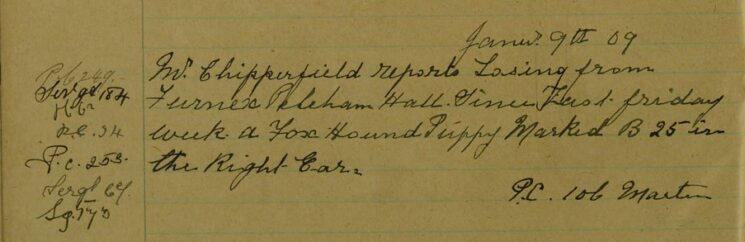 Janu. 9th 09
P.C. 249.
Sergt 184
P.C. 34
P.C. 253.
Sergt 64
Mr. Chipperfield reports Losing from
Furnex Pelcham Hall. Since Last friday
week a Fox Hound Puppy Marked B 25 in
the Right Ear.
P.C. 106 Martin